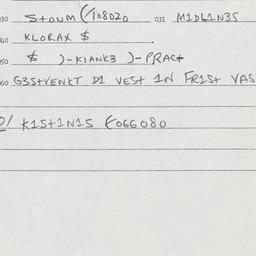 030 Stoum (/108020 031 M1DL1N35
040 KLORAX $
050 $ )-KIANK3 )-PRACt
060 G3StVENKT D1 VESt 1N FR1St VAS
0/ K1St1N15 €066080